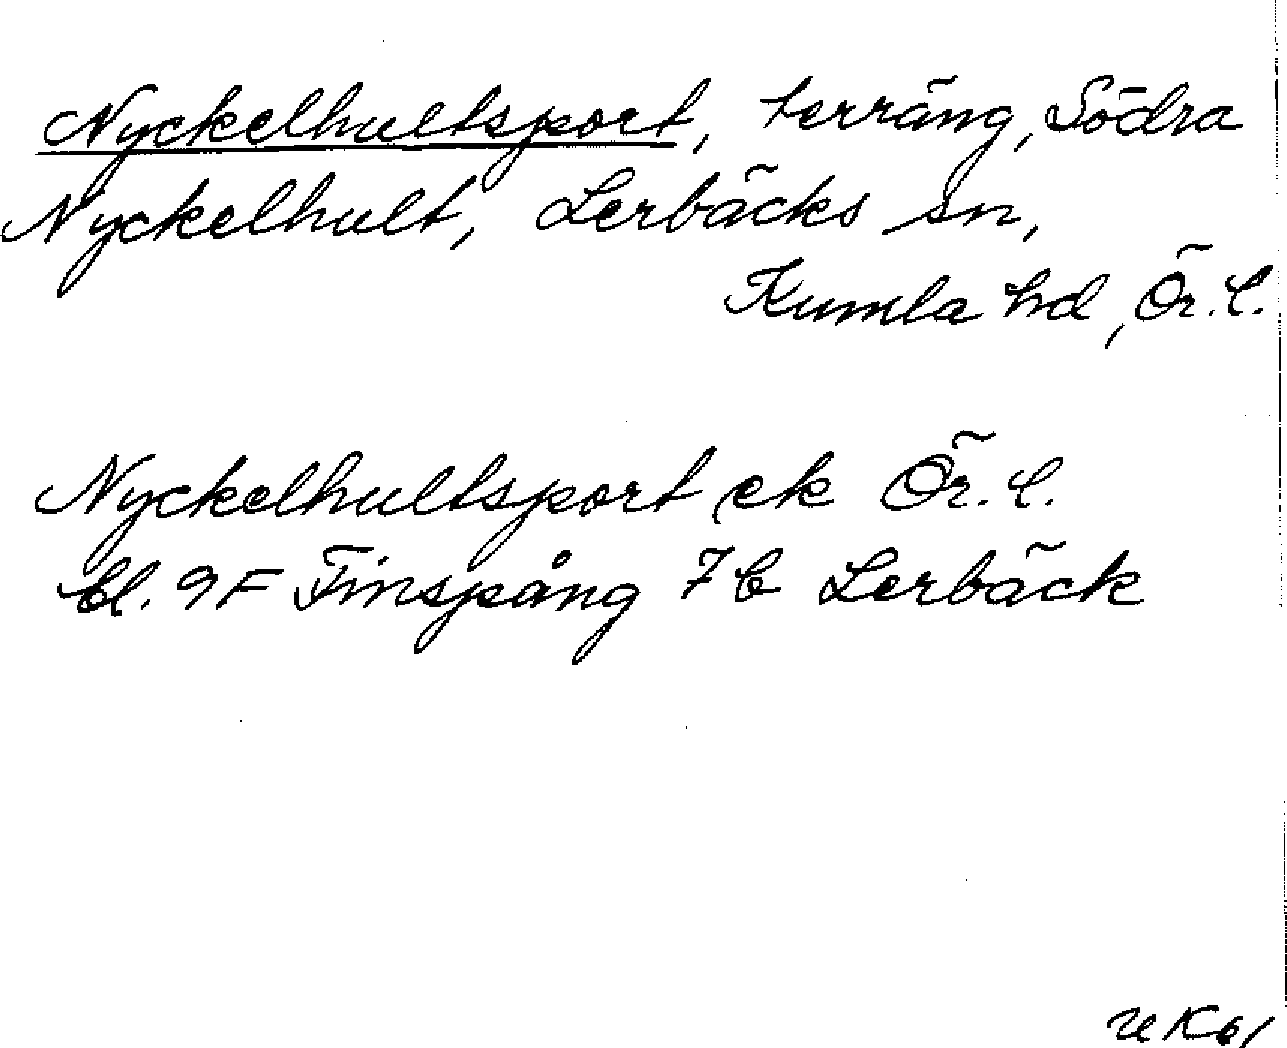 Nyckelhultsport, terräng, Södra
Nyckelhult, Lerbäcks sn,
Kumla hd, Ör. l.
Nyckelhultsport ek Ör. l.
bl. 9F Finspång 7b Lerbäck